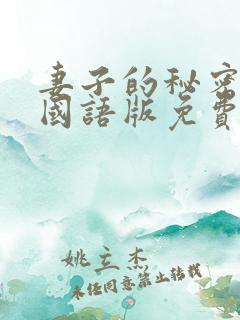 妻子的秘密
國語版免費
姚立杰
未经同意禁止转载